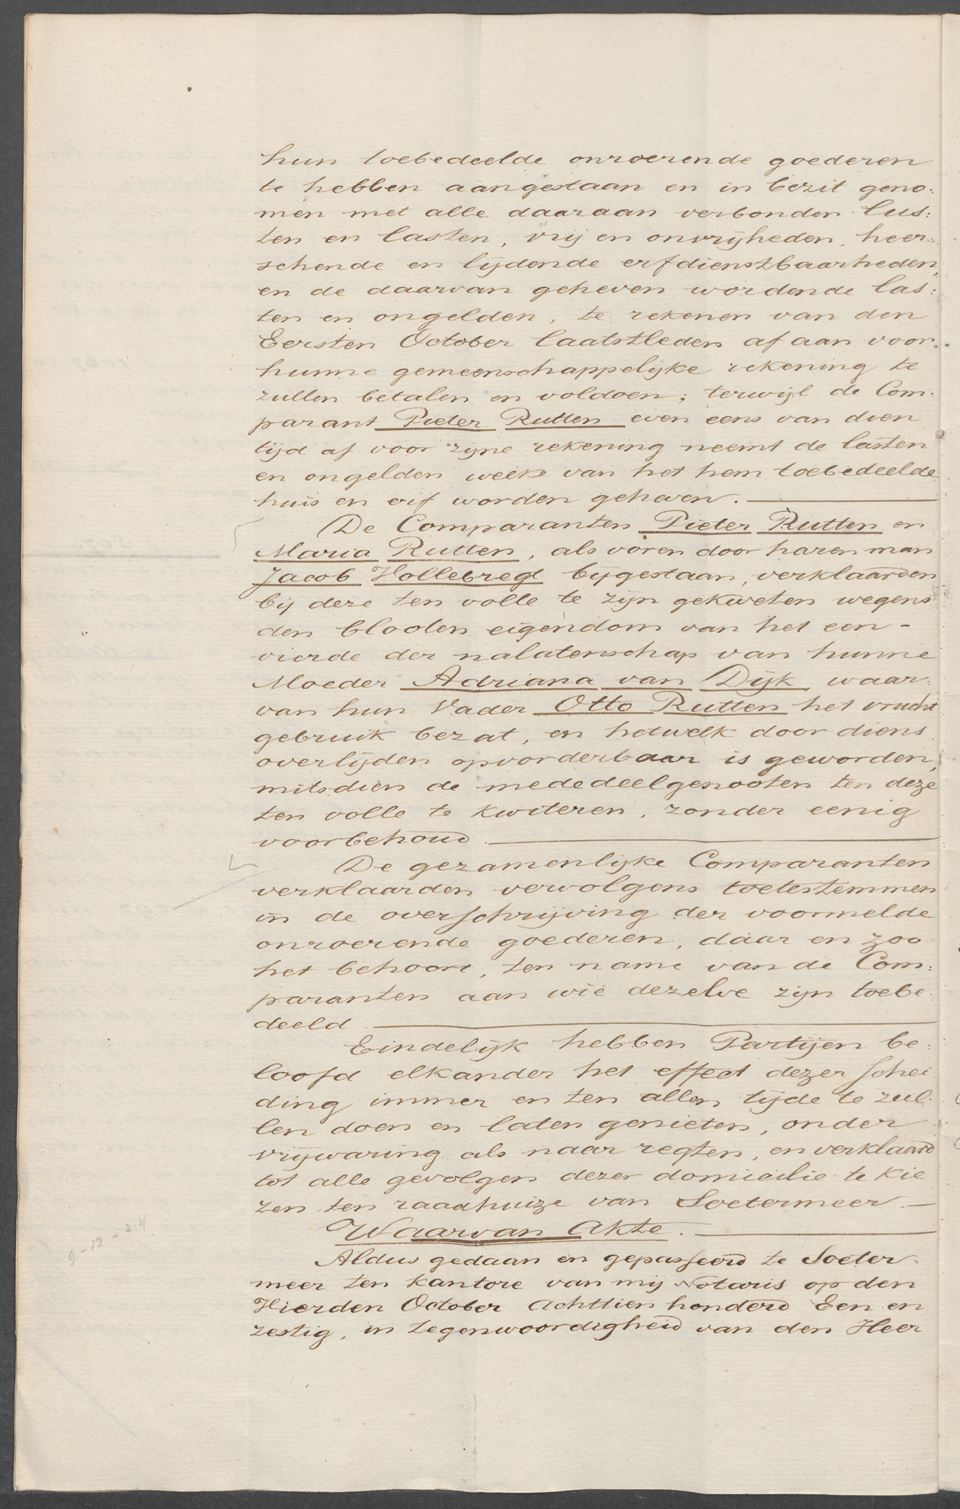 hun toebedeelde onroerende goederen
te hebben aangeslaan en in bezit geno:
men met alle daaraan verbonden lus:
ten en lasten, vrij en onvrijheden, heer:
schende en lijdende erfdienstbaarheden,
en de daarvan geheven wordende las:
ten en ongelden, te rekenen van den
Eersten October laatstleden af aan voor
hunne gemeenschappelijke rekening te
zullen betalen en voldoen; terwijl de Com:
parant Pieter Rutten even eens van dien
tijd af voor zijne rekening neemt de lasten
en ongelden welke van het hem toebedeelde
huis en erf worden geheven.
De Comparanten Pieter Rutten en
Maria Rutten, als voren door haren man
Jacob Hollebregt bijgestaan, verklaarden
bij deze ten volle te zijn gekweten wegens
den blooten eigendom van het een-
vierde der nalatenschap van hunne
Moeder Adriana van Dijk waar-
van hun Vader Otto Rutten het vrucht
gebruik bezat, en hetwelk door diens
overlijden opvorderbaar is geworden,
mitsdien de mededeelgenooten ten deze
ten volle te kwiteren, zonder eenig
voorbehoud.
De gezamenlijke Comparanten
verklaarden vervolgens toetestemmen
in de overschrijving der voormelde
onroerende goederen, daar en zoo
het behoort, ten name van de Com:
paranten aan wie dezelve zijn toebe:
deeld.
Eindelijk hebben Partijen be:
loofd elkander het effect dezer schei
ding immer en ten allen tijde te zul:
len doen en laten genieten, onder
vrijwaring als naar regten, en verklaard
tot alle gevolgen dezer domicilie te kie
zen ten raadhuize van Soetermeer.
Waarvan Akte.
Aldus gedaan en gepasseerd te Soeter-
meer ten kantore van mij Notaris op den
Vierden October Achttien honderd Een en
zestig, in tegenwoordigheid van den Heer